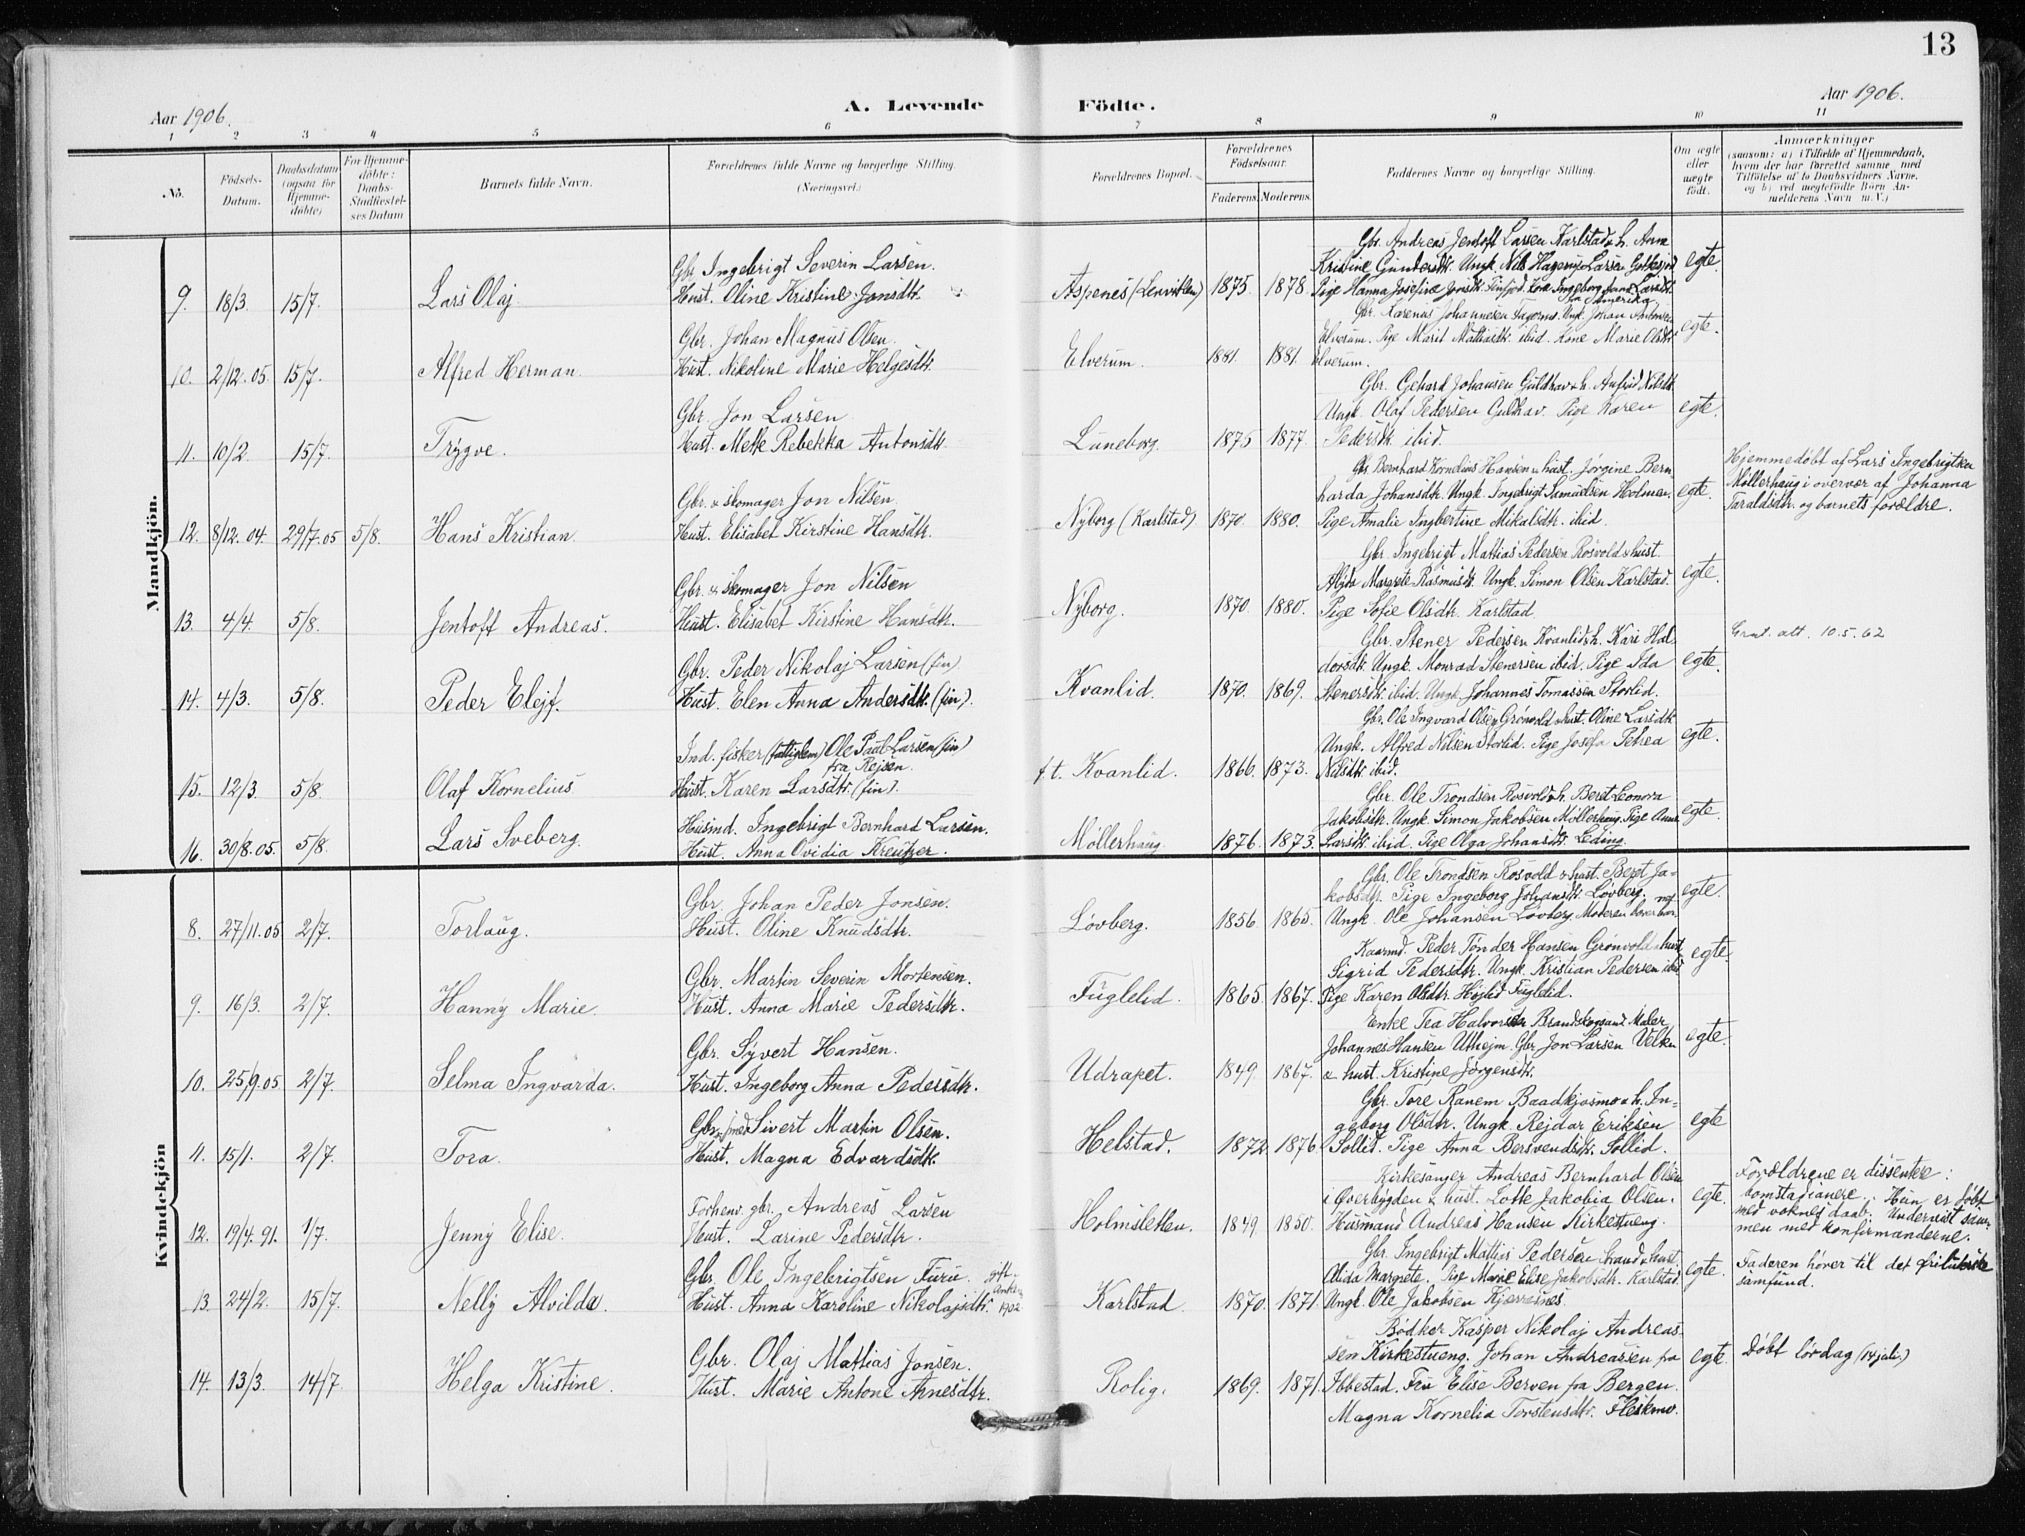 13
Aar 1906.
A. Levende Födte.
Aar 1906.
1 2 3 4 5 6 7 8 9 10 11
No.
Födsels-Datum.
Daabsdatum (ogsaa for Hjemme-döbte)
For Hjemme-döbte: Daabs-Stadfæstel-ses Datum
Barnets fulde Navn.
Forældrenes fulde Navne og borgerlige Stilling. (Næringsvei.)
Forældrenes Bopæl.
Forældrenes Födselsaar.
Faderens. Moderens.
Faddernes Navne og borgerlige Stilling.
Om ægte eller uægte födt.
Anmærkninger
(saasom: a) i Tilfælde af Hjemmedaab, hvem der har forrettet samme, med Tilföielse af to Daabsvidners Navne, og b) ved uægtefödte Börn An-melderens Navn m. V.)
Mandkjön.
9. 18/3 15/7. Lars Olaj
Gbr. Ingebrigt Severin Larsen.
Hust. Oline Kristine Jonsdtr.
Aspenes (Lenvikten) 1875 1878
Gbr. Andreas Jentoft Larsen Karlstad & h. Anna
Kristine Gundersdtr. Ungk. Nils Hagerup Larsen
Pige Hanna Josefine Jonsdtr. Finfjod. Kone Ingeborg Larsdtr. fra Amerika
egte.
10. 2/12.05 15/7. Alfred Herman
Gbr. Johan Magnus Olsen
Hust. Nikoline Marie Helgesdtr.
Elverum. 1881. 1881.
Gbr. Karenus Johannesen Fagernes. Ungk. Johan Antonsen
Elverum. Pige Marit Mattiasdtr. ibid. Kone Marie Olsdtr.
Elverum.
egte.
11. 10/2. 15/7. Trygve.
Gbr. Jon Larsen
Hust. Mette Rebekka Antonsdtr.
Luneborg. 1875 1877.
Gbr. Gehard Johansen Guldhav & h. Anfrid Nilsdtr.
Ungk. Olaf Pedersen Gulhav. Pige Karen
Pedersdtr. ibid.
egte.
12. 8/12.04. 29/7.05 5/8. Hans Kristian
Gbr. & skomager Jon Nilsen
Hust. Elisabet Kirstine Hansdtr.
Nyborg (Karlstad) 1870. 1880.
Gbr. Bernhard Kornelius Hansen & hust. Jörgine Bern-
harda Johansdtr. Ungk. Ingebrigt Samuelsen Holmen.
Pige Amalie Ingbertine Mikalsdtr. ibid.
egte.
Hjemmedöbt af Lars Ingebrigtsen
Möllerhaug i overvær af Johanna
Taraldsdtr. og barnets forældre.
13. 4/4. 5/8. Jentoft Andreas.
Gbr. & skomager Jon Nilsen
Hust. Elisabet Kirstine Hansdtr.
Nyborg. 1870. 1880.
Gbr. Ingebrigt Mattias Pedersen Rosvold & hust.
Alida Margrete Rasmusdtr. Ungk. Simon Olsen Karlstad.
Pige Sofie Olsdtr. Karlstad
egte.
14. 4/3. 5/8. Peder Elejf.
Gbr. Peder Nikolaj Larsen (fin)
Hust. Elen Anna Andersdtr. (fin).
Kvanlid. 1870. 1869.
Gbr. Stener Pedersen Kvanlid & h. Kari Hal-
dorsdtr. Ungk. Monrad Stenersen ibid. Pige Ida
Stenersdtr. ibid. Ungk. Johannes Tomassen Storlid.
egte.
att. 10.5.62
15. 12/3. 5/8. Olaf Kornelius
Ind. fisker (fattiglem) Ole Paul Larsen (fin)
fra Rejsen.
Hust. Karen Larsdtr. (fin).
f.t. Kvanlid. 1866. 1873.
Gbr. Ole Ingvard Olsen Grönvold & hust. Oline Larsdtr.
Ungk. Alfred Nilsen Storlid. Pige Josefa Petrea
Nilsdtr. ibid.
egte.
16. 30/8.05. 5/8. Lars Sveberg.
Husmd. Ingebrigt Bernhard Larsen.
Hust. Anna Ovidia Kreutzer.
Möllerhaug 1876. 1873.
Gbr. Ole Trondsen Rosvold & h. Beret Leonora
Jakobsdtr. Ungk. Simon Jakobsen Möllerhaug. Pige Anna
Larsdtr. ibid. Pige Olga Johansdtr. Leding.
egte.
Kvindekjön
8. 27/11.05 2/7. Torlaug.
Gbr. Johan Peder Jonsen.
Hust. Oline Knudsdtr.
Lövberg. 1856 1865.
Gbr. Ole Trondsen Rosvold & hust. Beret Ja-
kobsdtr. Pige Ingeborg Johansdtr. Lövberg.
Ungk. Ole Johansen Lövberg. Moderen
egte.
9. 16/3. 2/7. Hanny Marie.
Gbr. Martin Severin Mortensen.
Hust. Anna Marie Pedersdtr.
Fuglelid. 1865. 1867.
Kaarmd. Peder Tönder Hansen Grönvold & hust.
Sigrid Pedersdtr. Ungk. Kristian Pedersen ibid
Pige Karen Olsdtr. Höjlid Fuglelid.
egte.
10. 25/9.05 2/7. Selma Ingvarda.
Gbr. Syvert Hansen.
Hust. Ingeborg Anna Pedersdtr.
Udrapet. 1849. 1867.
Enke Tea Halvorsdtr. Brandskogsand. Maler
Johannes Hansen Utheim. Gbr. Jon Larsen
& hust. Kristine Jörgensdtr.
egte.
11. 15/1. 2/7. Tora.
Gbr. Sivert Martin Olsen.
Hust. Magna Edvardsdtr.
Helstad. 1872 1876.
Gbr. Tore Ranem Baadkjosmo & h. In-
geborg Olsdtr. Ungk. Rejdar Eriksen
Sollid. Pige Anna Bersvendsdtr. Sollid.
egte
12. 19/4.91. 1/7. Jenny Elise.
Forhenv. gbr. Andreas Larsen
Hust. Larine Pedersdtr.
Holmsletten. 1849. 1850.
Kirkesanger Andreas Bernhard Olsen
i Øverbygden & hust. Lotte Jakobia Olsen.
Husmand Andreas Hansen Kirkestueng.
egte.
Forældrene er dissentere:
Hun er döbt
med voksnes daab. Undervist sam-
men med konfirmanderne.
13. 24/2. 15/7. Nelly Alvilda.
Gbr. Ole Ingebrigtsen Furu.
Hust. Anna Karoline Nikolajsdtr.
gift 1902
Karlstad. 1870. 1871.
Gbr. Ingebrigt Mattias Pedersen & hust.
Alida Margrete. Pige Marie Elise Jakobsdtr. Karlstad.
Ungk. Ole Jakobsen Kjærresnes.
egte.
Faderen hörer til det frilutherske
samfund.
14. 13/3. 14/7. Helga Kristine.
Gbr. Olaj Mattias Jonsen.
Hust. Marie Antone Arnesdtr.
Rolig. 1869. 1871.
Bödker Kasper Nikolaj Andreas-
sen Kirkestueng. Johan Andreassen fra
Ibbestad. Fru Elise Berven fra Bergen.
Magna Kornelia Torstensdtr. Heskmo.
egte.
Döbt lördag (14 juli.)